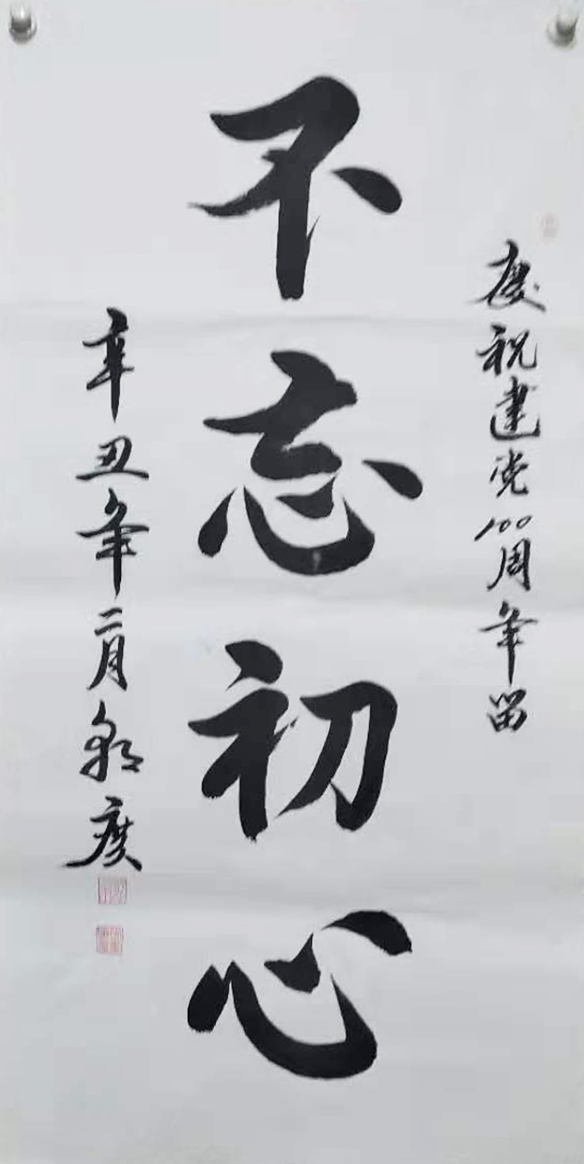 庆祝建党100周年留
不忘初心
辛丑年二月